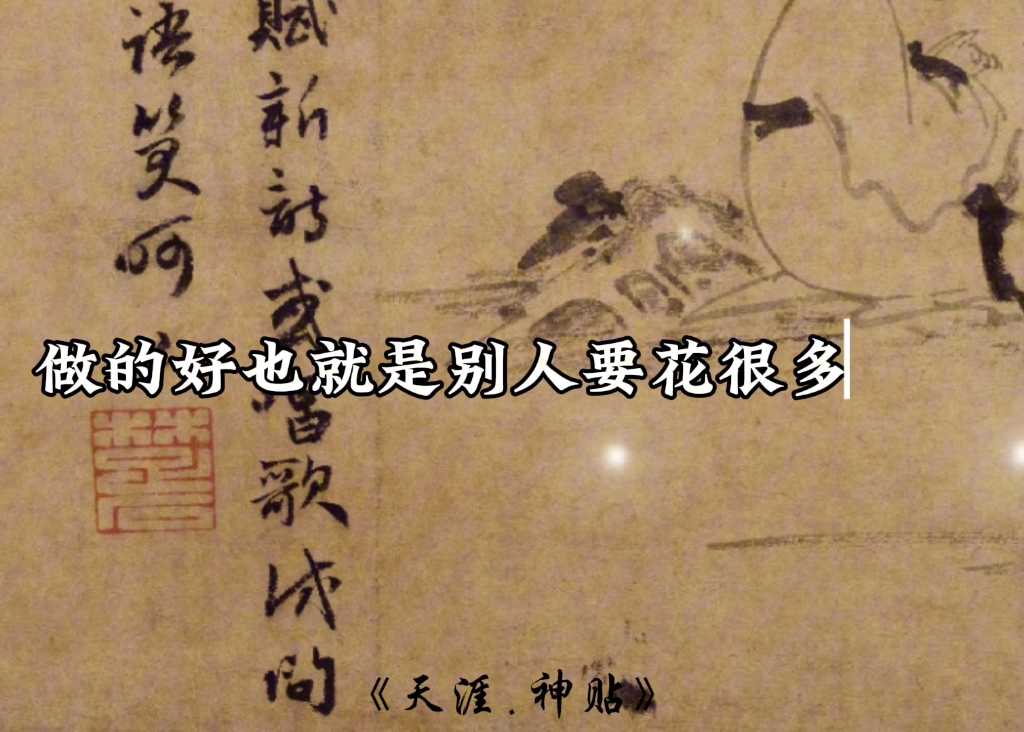 賦新詩或唱歌
語笑呵
做的好也就是别人要花很多
《天涯.神贴》